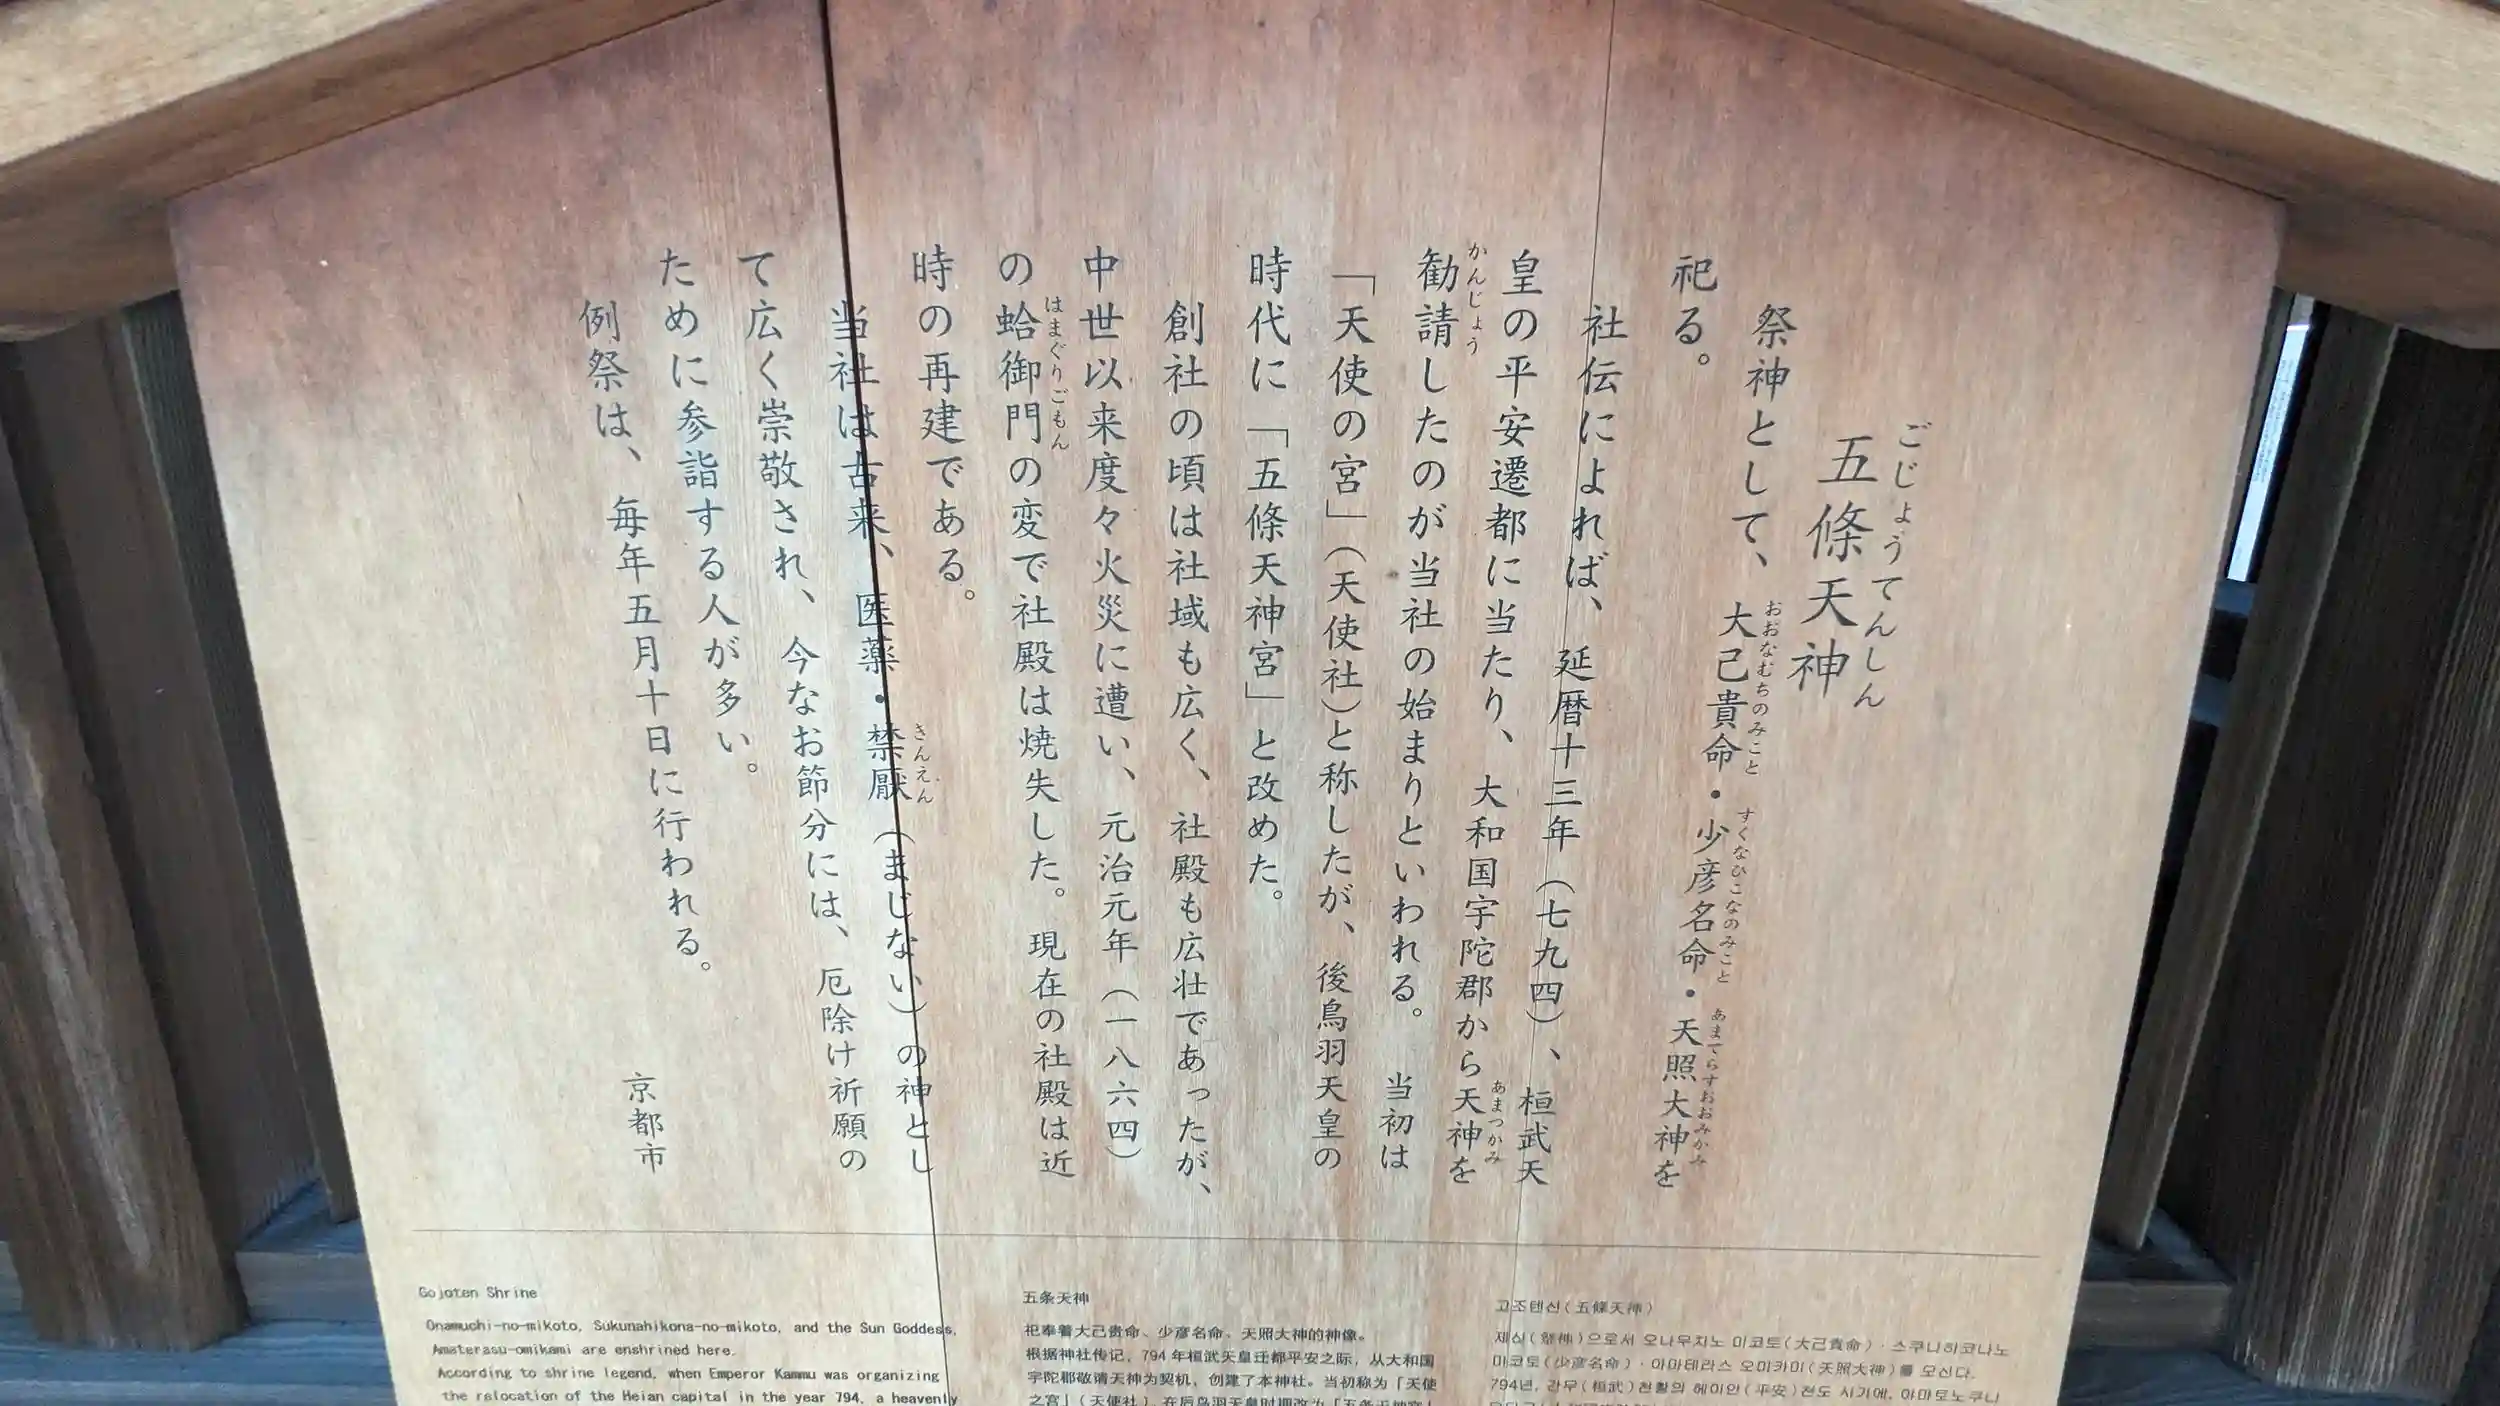 五條天神
ごじょうてんしん
祭神として、大己貴命・少彦名命・天照大神を
おおなむちのみこと すくなひこなのみこと あまてらすおおみかみ
祀る。
社伝によれば、延暦十三年（七九四）、桓武天
皇の平安遷都に当たり、大和国宇陀郡から天神を
あまつかみ
勧請したのが当社の始まりといわれる。当初は
かんじょう
「天使の宮」（天使社）と称したが、後鳥羽天皇の
時代に「五條天神宮」と改めた。
創社の頃は社域も広く、社殿も広壮であったが、
中世以来度々火災に遭い、元治元年（一八六四）
の蛤御門の変で社殿は焼失した。現在の社殿は近
はまぐりごもん
時の再建である。
当社は古来、医薬・禁厭（まじない）の神とし
きんえん
て広く崇敬され、今なお節分には、厄除け祈願の
ために参詣する人が多い。
例祭は、毎年五月十日に行われる。
京都市
Gojoten Shrine
Onamuchi-no-mikoto, Sukunahikona-no-mikoto, and the Sun Goddess,
Amaterasu-omikami are enshrined here.
According to shrine legend, when Emperor Kammu was organizing
the relocation of the Heian capital in the year 794, a heavenly
五条天神
祀奉着大己贵命、少彦名命、天照大神的神像。
根据神社传记，794年桓武天皇迁都平安之际，从大和国
宇陀郡敬请天神为契机，创建了本神社。当初称为「天使
之宫」（天使社），在后鸟羽天皇时期改为「五条天神宫」
고조텐신(五條天神)
제신(祭神)으로서 오나무치노 미코토(大己貴命)·스쿠나히코나노
미코토(少彦名命)·아마테라스 오미카미(天照大神)를 모신다.
794년, 간무(桓武)천황의 헤이안(平安)천도 시기에, 야마토노쿠니